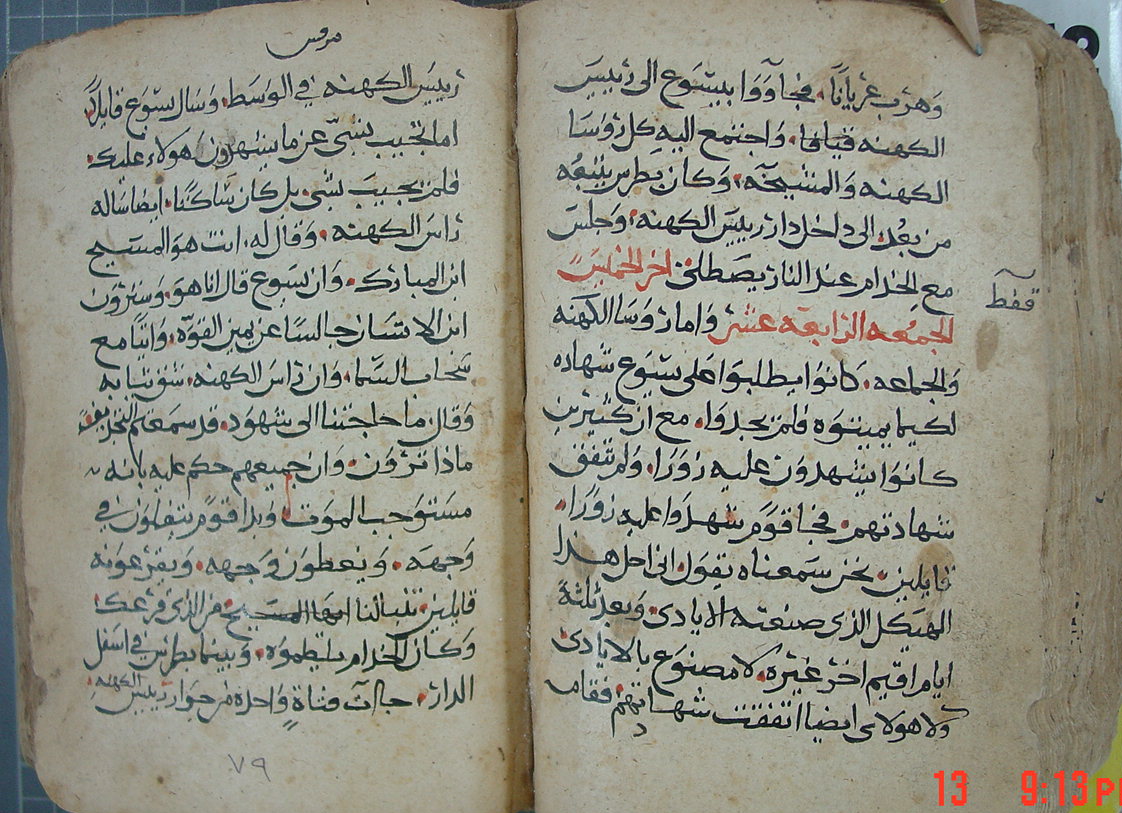 وهرب عريانًا. فجآووا بيسوع الى رييس
الكهنه قيافا. واجتمع اليه كل روسا
الكهنه والمشيخه، وكان بطرس يتبعه
من بعُد. الى داخل دار رييس الكهنه. وجلس
مع الخدام عند النار يصطلي اخر الخميس
الجمعه الرابعه عشر واما روسا الكهنه
والجماعه. كانوا يطلبوا على يسوع شهاده
لكيما يميتوه فلم يجدوا. مع ان كثيرين
كانوا يشهدون عليه زورا. ولم تتفق
شهادتهم. فجا قوم شهدوا عليه زورا.
قايلين. نحن سمعناه يقول. انى احل هذا
الهيكل الذى صنعته الايادى. وبعد ثلثة
ايام اقيم اخر غيره. لا مصنوع بالايادى.
ولا هولاى ايضا اتفقت شهادتهم. فقام
فقط
مرقس
رييس الكهنه في الوسط. وسال يسوع قايلاً.
اما تجيب بشي عن ما يشهدون هولاء عليك.
فلم يجيب بشى بل كان ساكتا. ايضا ساله
راس الكهنه. وقال له. انت هو المسيح
ابن المبارك. وان يسوع قال انا هو، وسترون
ابن الانسان جالسا عن يمين القوه، واتيا مع
سحاب السما. وان راس الكهنه. شق ثيابه
وقال ما حاجتنا الى شهود. قد سمعتم التجديف
ماذا ترون. وان جميعهم حكم عليه بانه
مستوجب الموت. وبدا قوم يتفلون في
وجهه. ويغطون وجهه. ويقرعونه
قايلين. تنبا لنا ايها المسيح من الذى قرعك
وكان الخدام يلطموه. وبينما بطرس في اسفل
الدار. جاات فتاة واحده من جوار رييس الكهنه.
٧٩
13 9:13